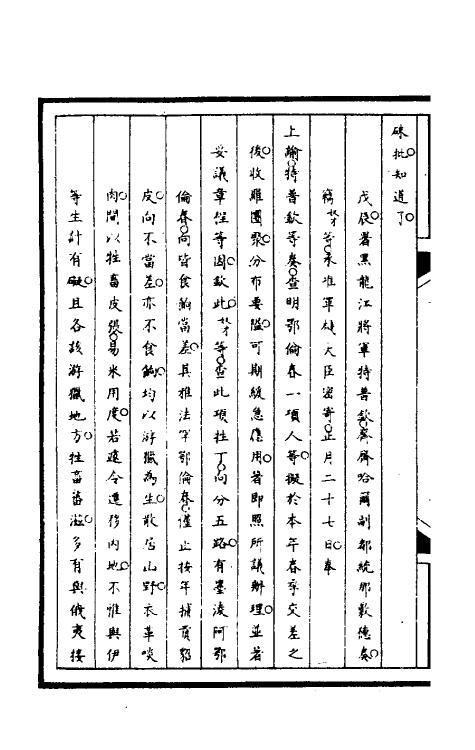 硃批知道了
戊辰署黑龍江將軍特普欽齊齊哈爾副都統那敷德奏
竊奴才等承准軍機大臣密寄正月二十七日奉
上諭特普欽等奏查明鄂倫春一項人等擬於本年春季交差之
後收雁團聚分布要隘可期緩急應用著即照所議辦理並著
妥議章程等因欽此奴才等查此項牲丁向分五路有墨淩阿鄂
倫春向皆食餉當差其雅法罕鄂倫春僅止按年捕貢貂
皮向不當差亦不食餉均以游獵為生散居山野衣革啖
肉間以牲畜皮張易米用度若遽令遷移內地不惟與伊
等生計有礙且各該游獵地方牲畜蕃滋多有與俄夷接